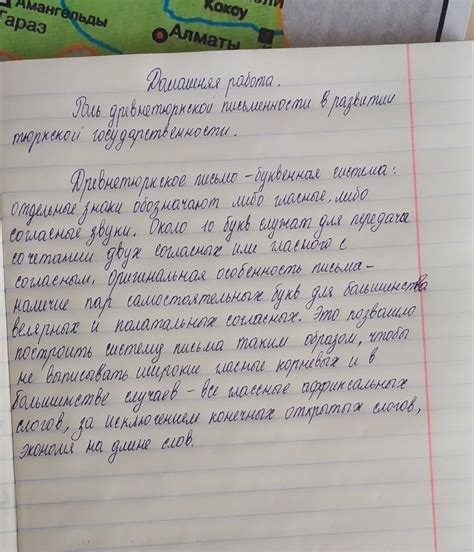 Амангельды
Тараз
Коксу
Алматы
Домашняя работа.
Роль древнетюркской письменности в развитии
тюркской государственности.
Древнетюркское письмо - буквенная система:
отдельные знаки обозначают либо гласные, либо
согласные звуки. Около 10 букв служат для передачи
сочетании двух согласных или гласного с
согласным. Оригинальная особенность письма-
наличие пар самостоятельных букв для большинства
велярных и палатальных согласных. Это позволило
построить систему письма таким образом, чтобы
не выписывать широкие гласные корневых и в
большинстве случаев - все гласные аффиксальных
слогов, за исключением конечных открытых слогов,
экономя на длине слов.